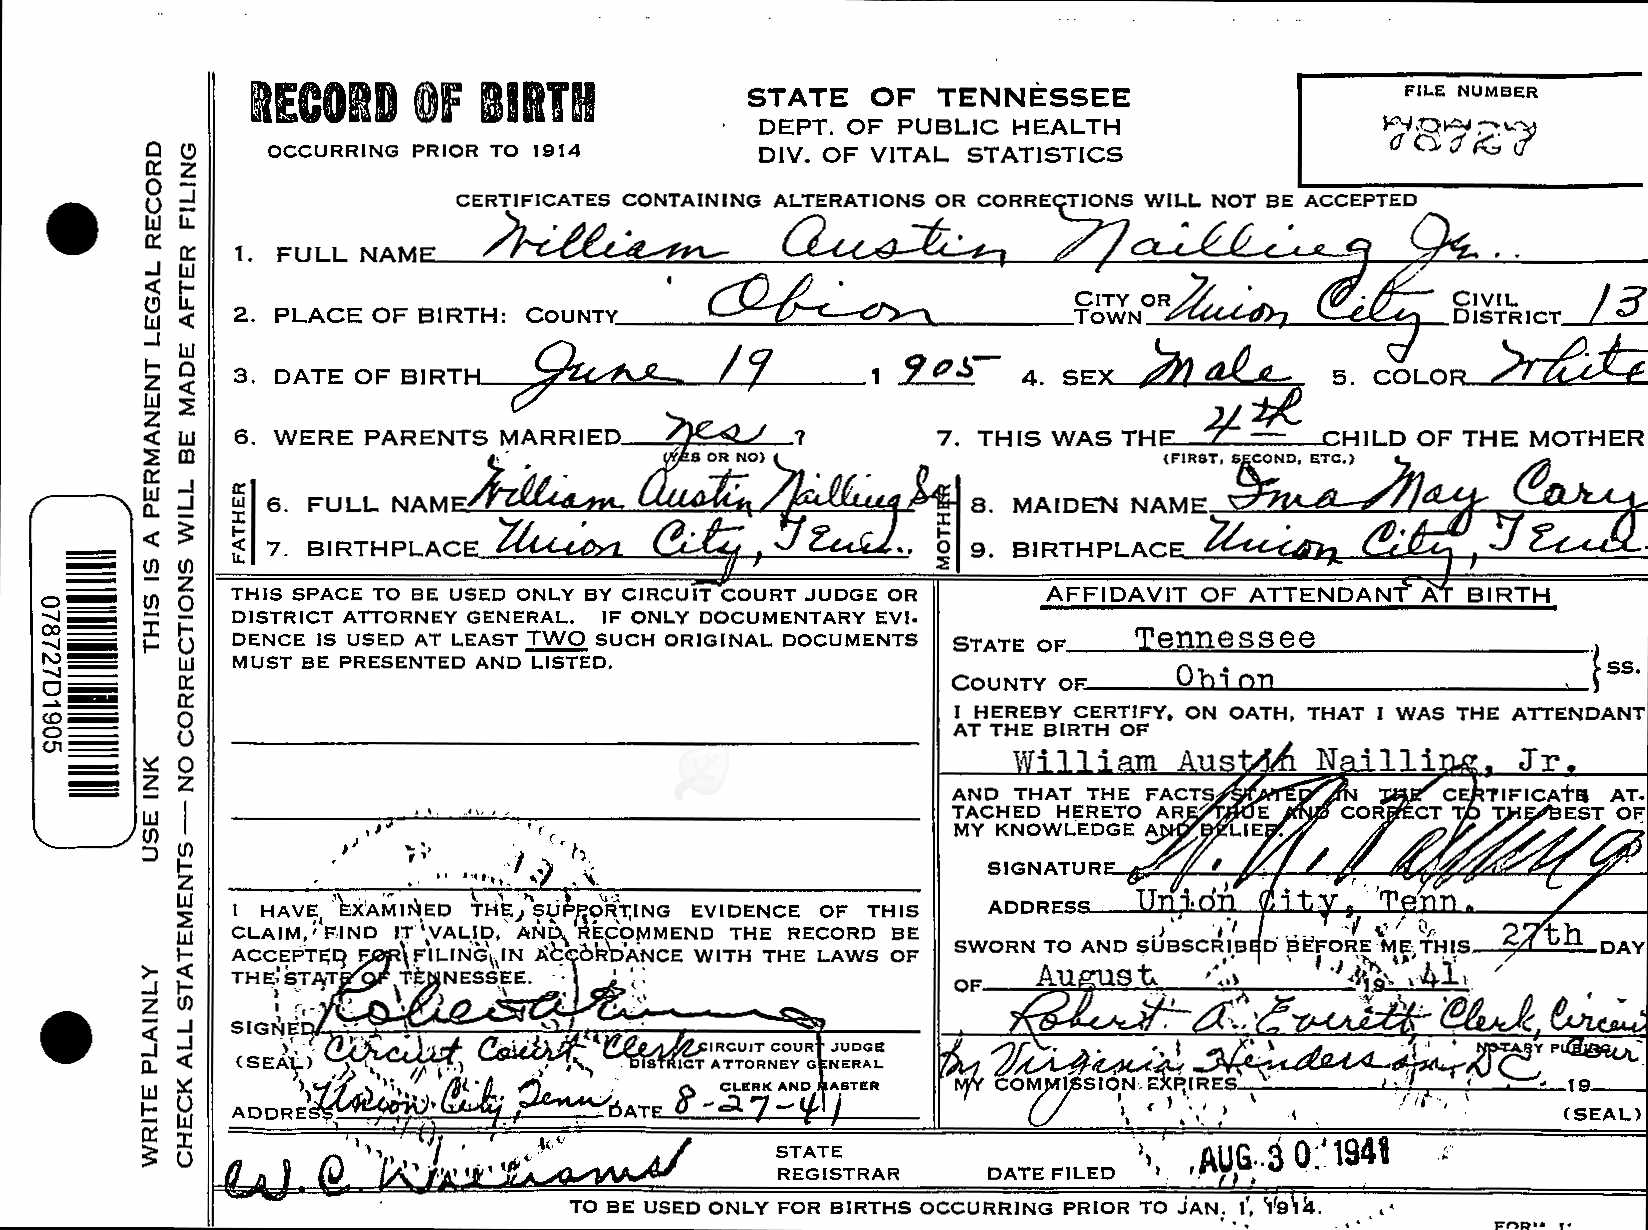 RECORD OF BIRTH
OCCURRING PRIOR TO 1914
STATE OF TENNESSEE
DEPT. OF PUBLIC HEALTH
DIV. OF VITAL STATISTICS
FILE NUMBER
78727
CERTIFICATES CONTAINING ALTERATIONS OR CORRECTIONS WILL NOT BE ACCEPTED
1. FULL NAME William Austin Nailling Jr.
2. PLACE OF BIRTH: COUNTY Obion CITY OR TOWN Union City CIVIL DISTRICT 13
3. DATE OF BIRTH June 19 1905 4. SEX Male 5. COLOR White
6. WERE PARENTS MARRIED yes ? 7. THIS WAS THE 4th CHILD OF THE MOTHER
(YES OR NO) (FIRST, SECOND, ETC.)
FATHER
6. FULL NAME William Austin Nailling Sr
7. BIRTHPLACE Union City, Tenn.
MOTHER
8. MAIDEN NAME Ima May Cary
9. BIRTHPLACE Union City, Tenn
THIS SPACE TO BE USED ONLY BY CIRCUIT COURT JUDGE OR
DISTRICT ATTORNEY GENERAL. IF ONLY DOCUMENTARY EVI-
DENCE IS USED AT LEAST TWO SUCH ORIGINAL DOCUMENTS
MUST BE PRESENTED AND LISTED.
I HAVE EXAMINED THE SUPPORTING EVIDENCE OF THIS
CLAIM, FIND IT VALID, AND RECOMMEND THE RECORD BE
ACCEPTED FOR FILING IN ACCORDANCE WITH THE LAWS OF
THE STATE OF TENNESSEE.
SIGNED
(SEAL) Circuit Court Clerk CIRCUIT COURT JUDGE
DISTRICT ATTORNEY GENERAL
CLERK AND MASTER
ADDRESS Union City, Tenn DATE 8-27-41
AFFIDAVIT OF ATTENDANT AT BIRTH
STATE OF Tennessee
COUNTY OF Obion
} SS.
I HEREBY CERTIFY, ON OATH, THAT I WAS THE ATTENDANT
AT THE BIRTH OF
William Austin Nailling, Jr.
AND THAT THE FACTS STATED IN THE CERTIFICATE AT-
TACHED HERETO ARE TRUE AND CORRECT TO THE BEST OF
MY KNOWLEDGE AND BELIEF.
SIGNATURE
ADDRESS Union City, Tenn.
SWORN TO AND SUBSCRIBED BEFORE ME THIS 27th DAY
OF August 19 41
Robert A. Everett Clerk, Circuit
NOTARY PUBLIC
By Virginia Henderson, DC
MY COMMISSION EXPIRES 19
(SEAL)
W. C. Williams STATE REGISTRAR DATE FILED AUG 30 1941
TO BE USED ONLY FOR BIRTHS OCCURRING PRIOR TO JAN. 1, 1914.
WRITE PLAINLY USE INK THIS IS A PERMANENT LEGAL RECORD
CHECK ALL STATEMENTS — NO CORRECTIONS WILL BE MADE AFTER FILING
078727D1905